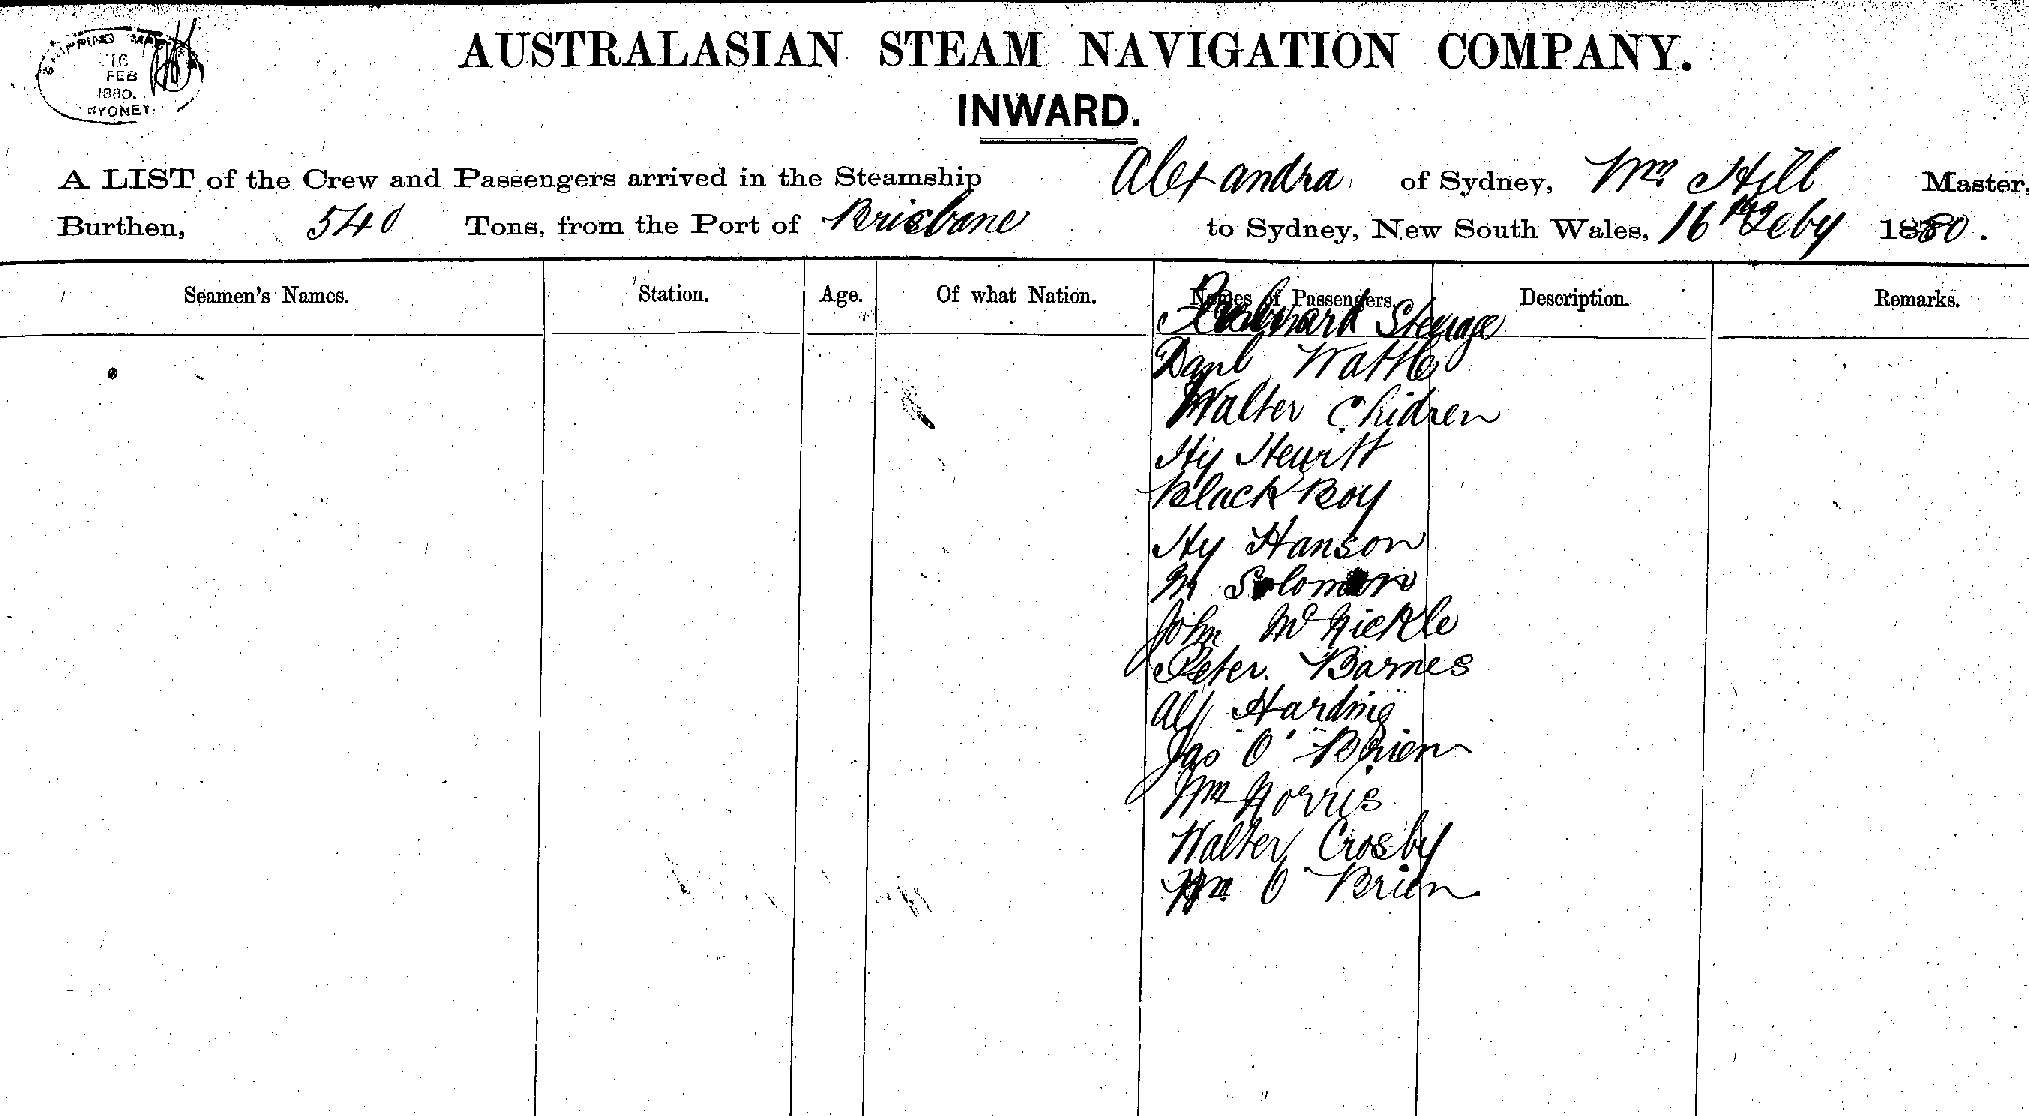 SHIPPING MAS
16
FEB
1880.
SYDNEY.
AUSTRALASIAN STEAM NAVIGATION COMPANY.
INWARD.
A LIST of the Crew and Passengers arrived in the Steamship Alexandra of Sydney, Wm Hill Master,
Burthen, 540 Tons, from the Port of Brisbane to Sydney, New South Wales, 16th Feby 1880.
Seamen's Names. Station. Age. Of what Nation. Names of Passengers. Description. Remarks.
Steerage
Danl
Walter Chidren
Hy Hewitt
Black Boy
Hy Hanson
M Solomon
John McNickle
Peter. Barnes
Alf Harding
Jas O'Brien
Wm Norris
Walter Crosby
Wm O'Brien